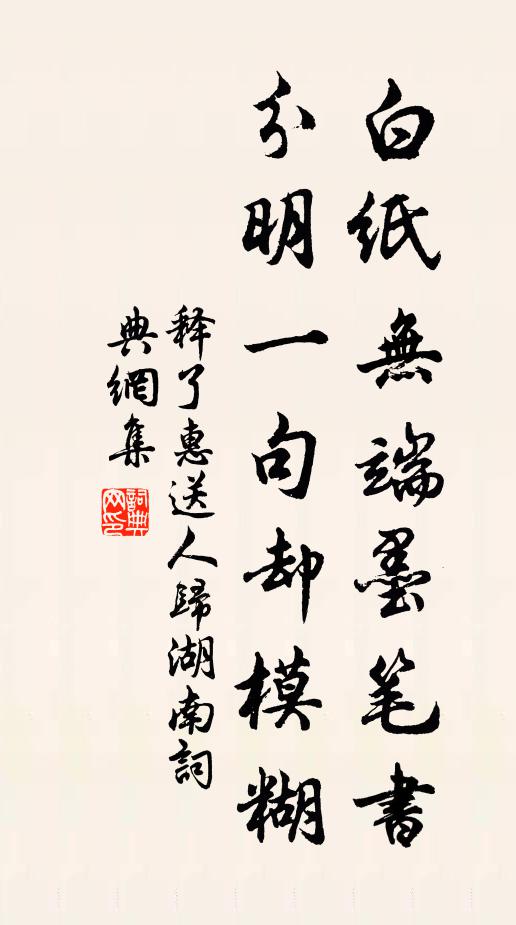 白纸無端墨笔書
分明一句却模糊
释了惠送人歸湖南詞
典網集
詞典網印